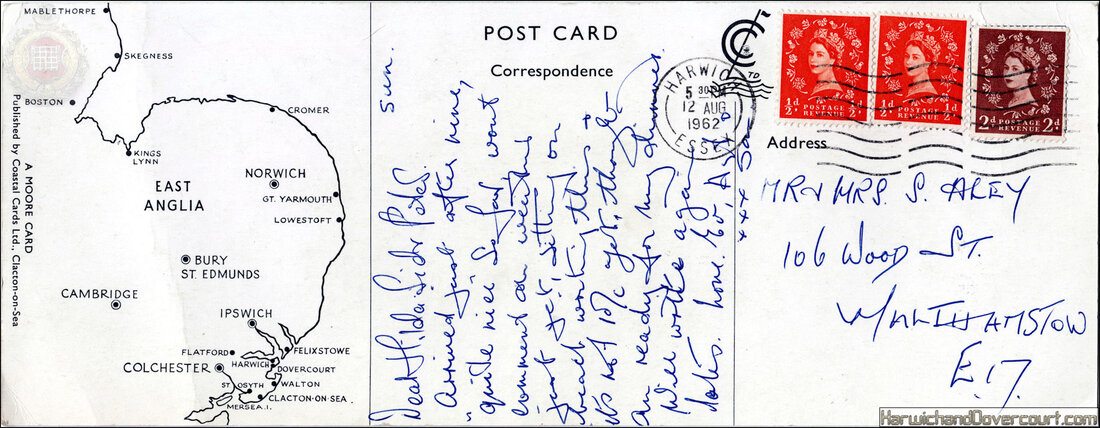 MABLETHORPE
SKEGNESS
BOSTON
CROMER
KINGS
LYNN
EAST
ANGLIA
NORWICH
GT. YARMOUTH
LOWESTOFT
BURY
ST. EDMUNDS
CAMBRIDGE
IPSWICH
FLATFORD
FELIXSTOWE
HARWICH
DOVERCOURT
COLCHESTER
WALTON
ST. OSYTH
CLACTON-ON-SEA
MERSEA. I.
A MOORE CARD
Published by Coastal Cards Ltd., Clacton-on-Sea
POST CARD
Correspondence
Sun.
Dear Hilda Sid & Peter
Arrived just after nine,
quite nice so far, wont
comment on weather
just yet, sitting on
beach writing this &
it's not 10/c yet, though
am ready for my slimmers.
Will write again
later. love. Ev, Art
xxx
HARWICH
5 30 PM
12 AUG
1962
ESSEX
½d ½d
POSTAGE
REVENUE
½d ½d
POSTAGE
REVENUE
2d 2d
POSTAGE
REVENUE
Address
MR & MRS. S. ALEY
106 WOOD ST.
WALTHAMSTOW
E.17.
HarwichandDovercourt.com